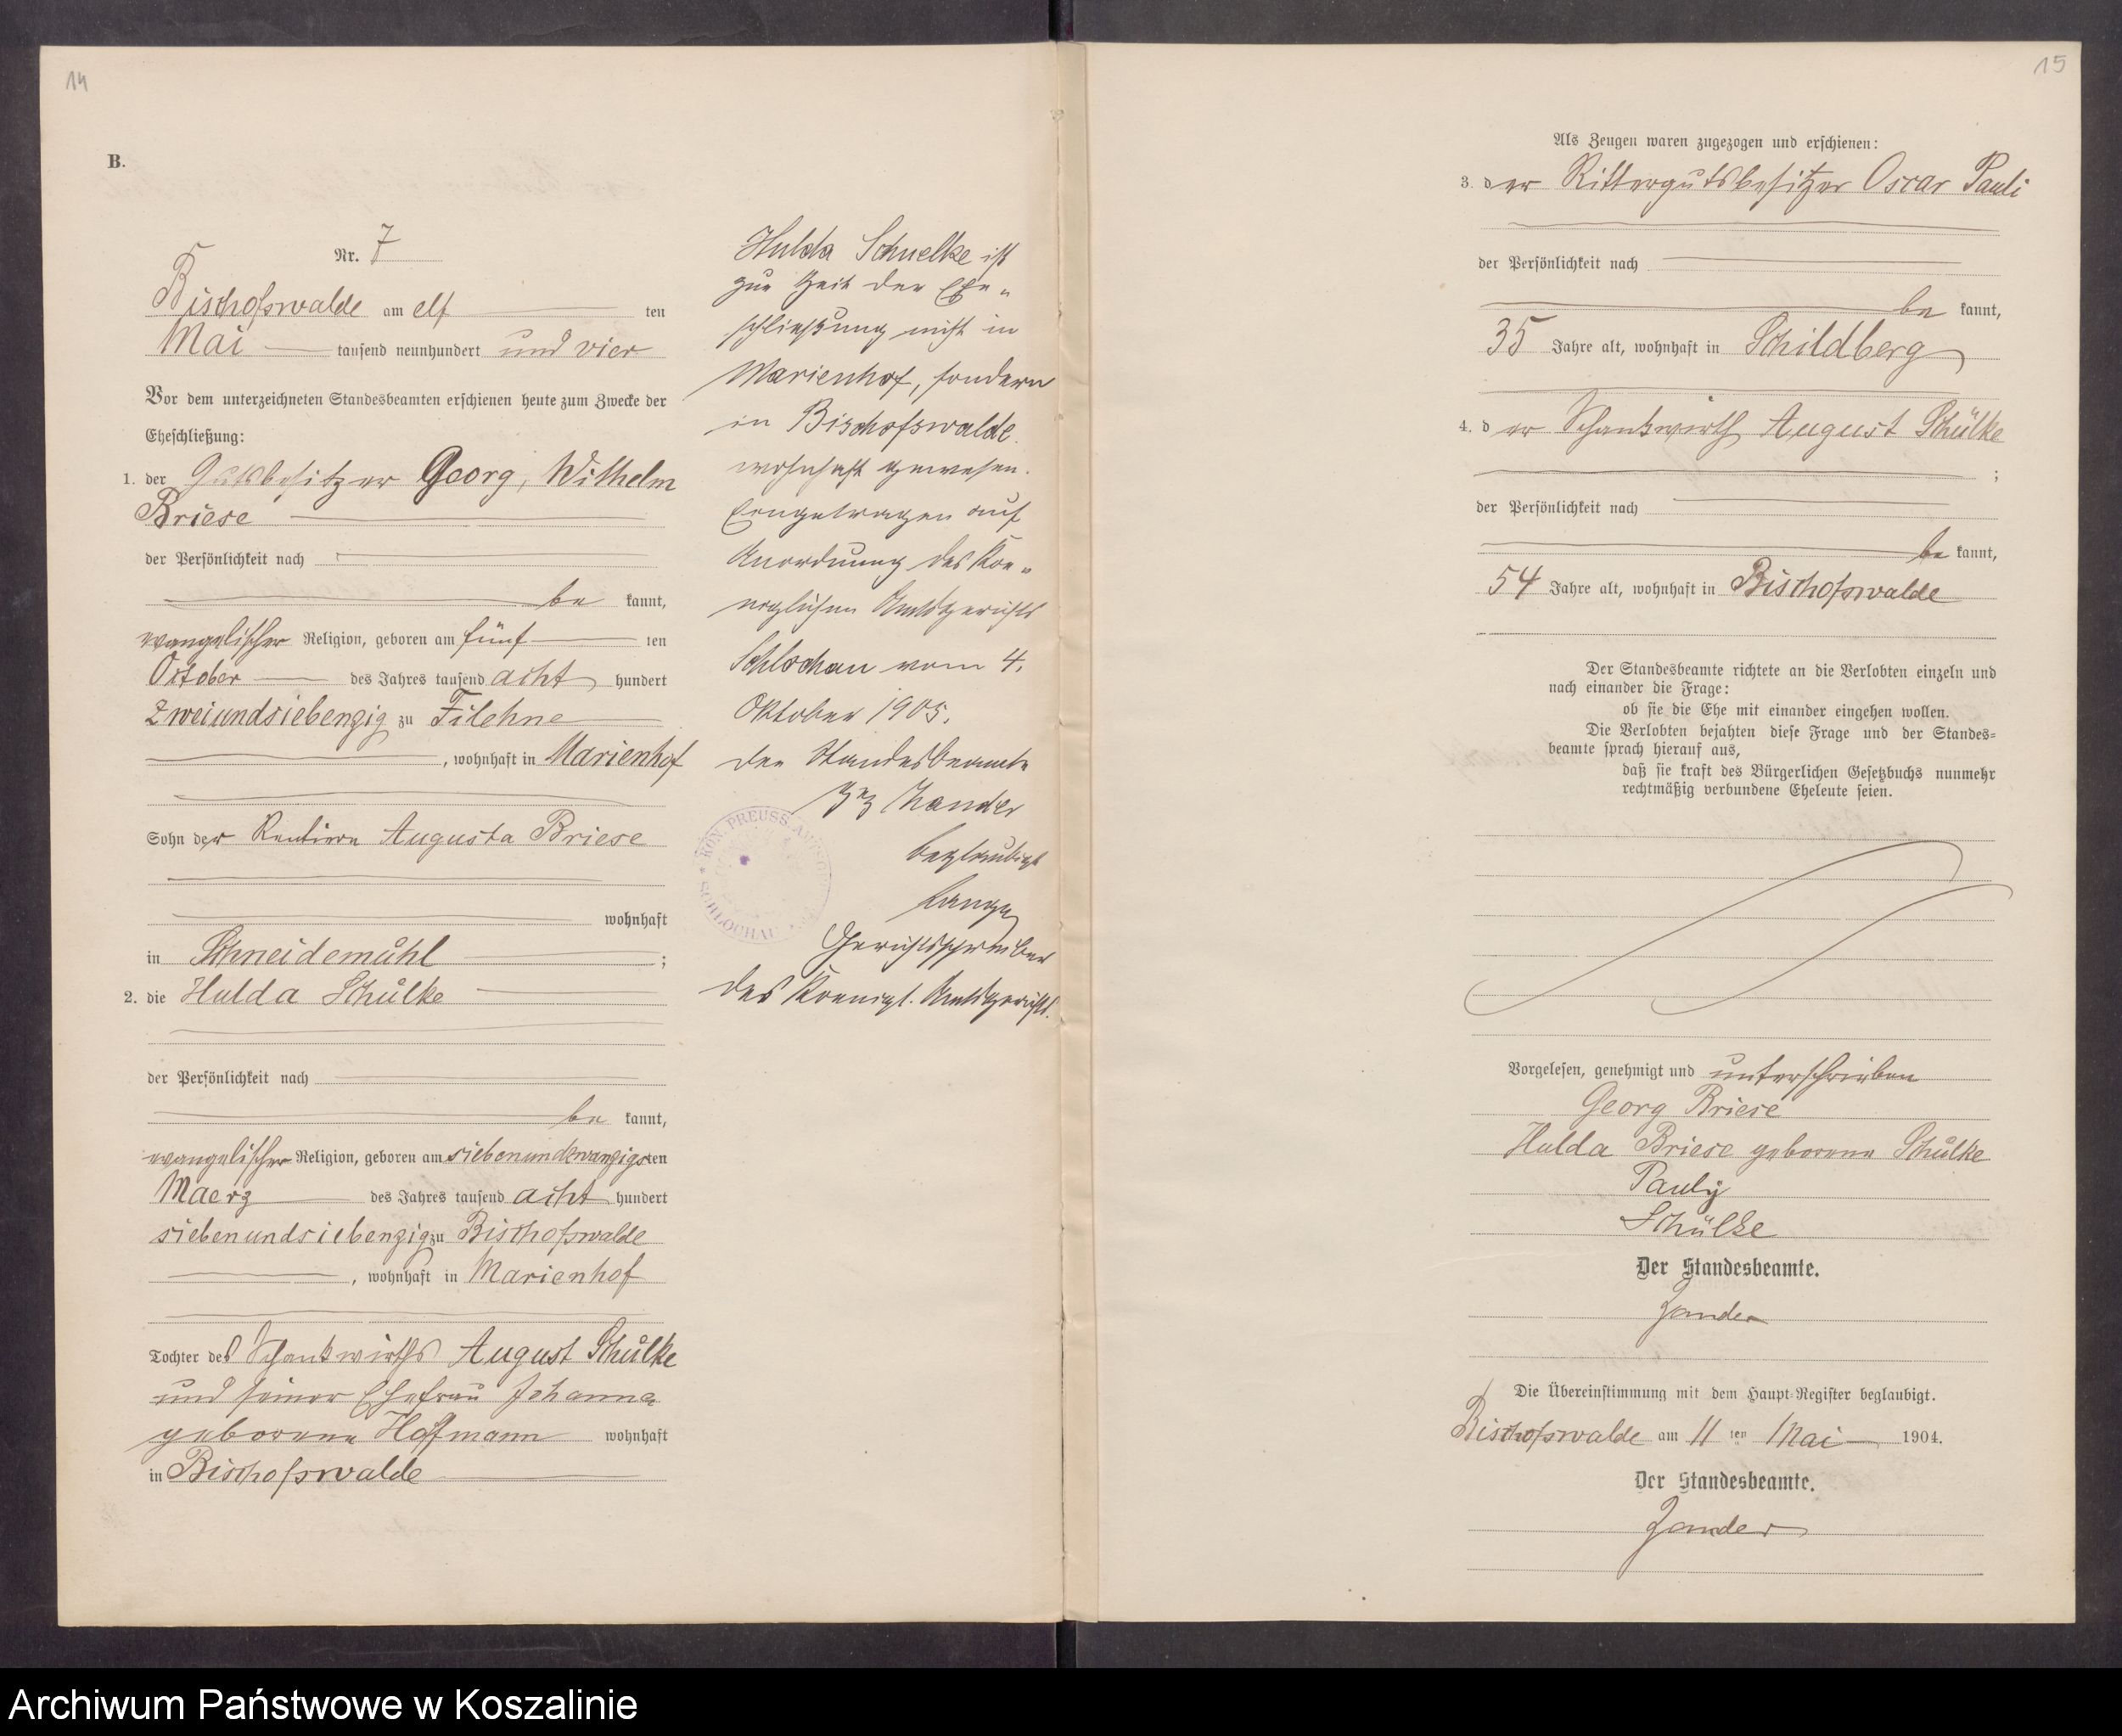 14
B.
Nr. 7
Bischofswalde am elf ten
Mai tausend neunhundert und vier
Vor dem unterzeichneten Standesbeamten erschienen heute zum Zwecke der
Eheschließung:
1. der Gutsbesitzer Georg, Wilhelm
Briese
der Persönlichkeit nach
be kannt,
evangelischer Religion, geboren am fünf ten
October des Jahres tausend acht hundert
zweiundsiebenzig zu Filehne
, wohnhaft in Marienhof
Sohn der Rentiere Augusta Briese
wohnhaft
in Schneidemühl ;
2. die Hulda Schülke
der Persönlichkeit nach
be kannt,
evangelischer Religion, geboren am siebenundzwanzigsten
Maerz des Jahres tausend acht hundert
siebenundsiebenzig zu Bischofswalde
, wohnhaft in Marienhof
Tochter des Schankwirths August Schülke
und seiner Ehefrau Johanna
geborene Hoffmann wohnhaft
in Bischofswalde
Hulda Schuelke ist
zur Zeit der Ehe-
schließung nicht in
Marienhof, sondern
in Bischofswalde
wohnhaft gewesen.
Eingetragen auf
Anordnung des Koe-
niglichen Amtsgerichts
Schlochau vom 4.
Oktober 1905.
Der Standesbeamte
gez Zander
beglaubigt
Lange
Gerichtsschreiber
des Koenigl. Amtsgerichts.
* KÖN. PREUSS. AMTSGERICHT * SCHLOCHAU
15
Als Zeugen waren zugezogen und erschienen:
3. der Rittergutsbesitzer Oscar Pauli
der Persönlichkeit nach
be kannt,
35 Jahre alt, wohnhaft in Schildberg
4. der Schankwirth August Schülke
;
der Persönlichkeit nach
be kannt,
54 Jahre alt, wohnhaft in Bischofswalde
Der Standesbeamte richtete an die Verlobten einzeln und
nach einander die Frage:
ob sie die Ehe mit einander eingehen wollen.
Die Verlobten bejahten diese Frage und der Standes=
beamte sprach hierauf aus,
daß sie kraft des Bürgerlichen Gesetzbuchs nunmehr
rechtmäßig verbundene Eheleute seien.
Vorgelesen, genehmigt und unterschrieben
Georg Briese
Hulda Briese geborene Schülke
Pauly
Schülke
Der Standesbeamte.
Zander
Die Übereinstimmung mit dem Haupt-Register beglaubigt.
Bischofswalde am 11 ten Mai 1904.
Der Standesbeamte.
Zander
Archiwum Państwowe w Koszalinie